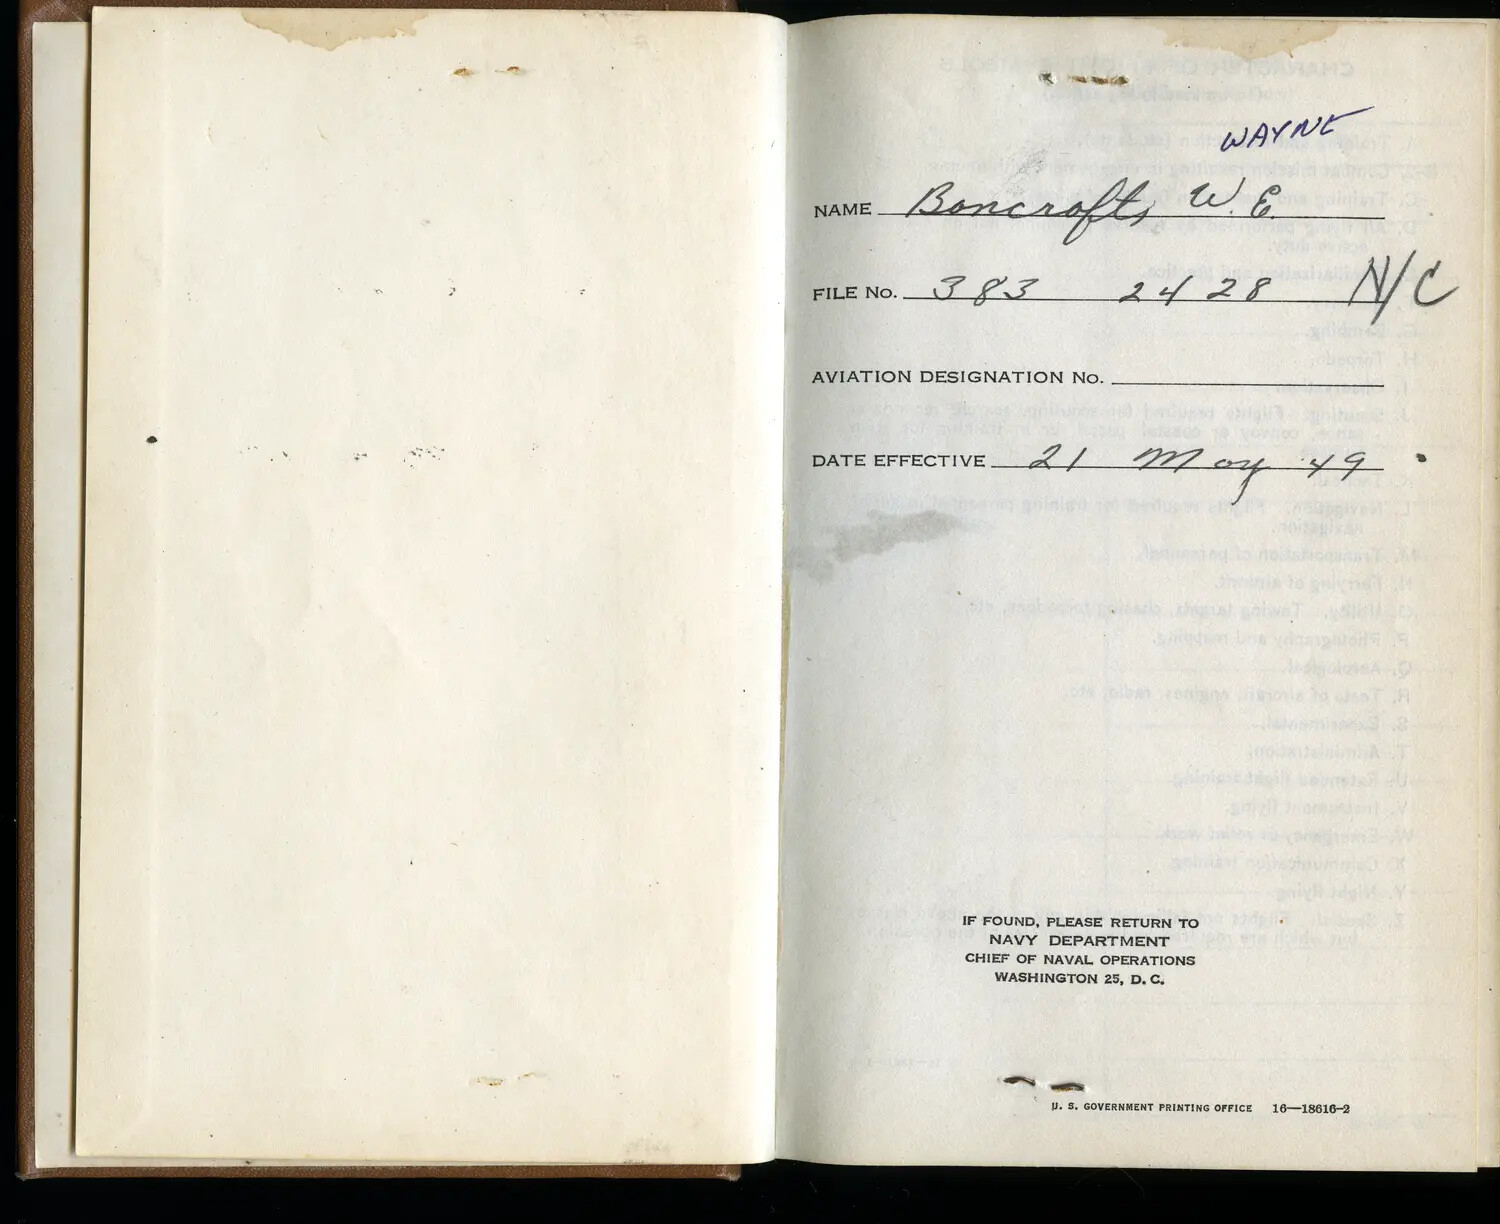 WAYNE
NAME Bancroft, W. E.
FILE No. 383 24 28 N/C
AVIATION DESIGNATION No.
DATE EFFECTIVE 21 May '49
IF FOUND, PLEASE RETURN TO
NAVY DEPARTMENT
CHIEF OF NAVAL OPERATIONS
WASHINGTON 25, D. C.
U. S. GOVERNMENT PRINTING OFFICE 16—18616-2